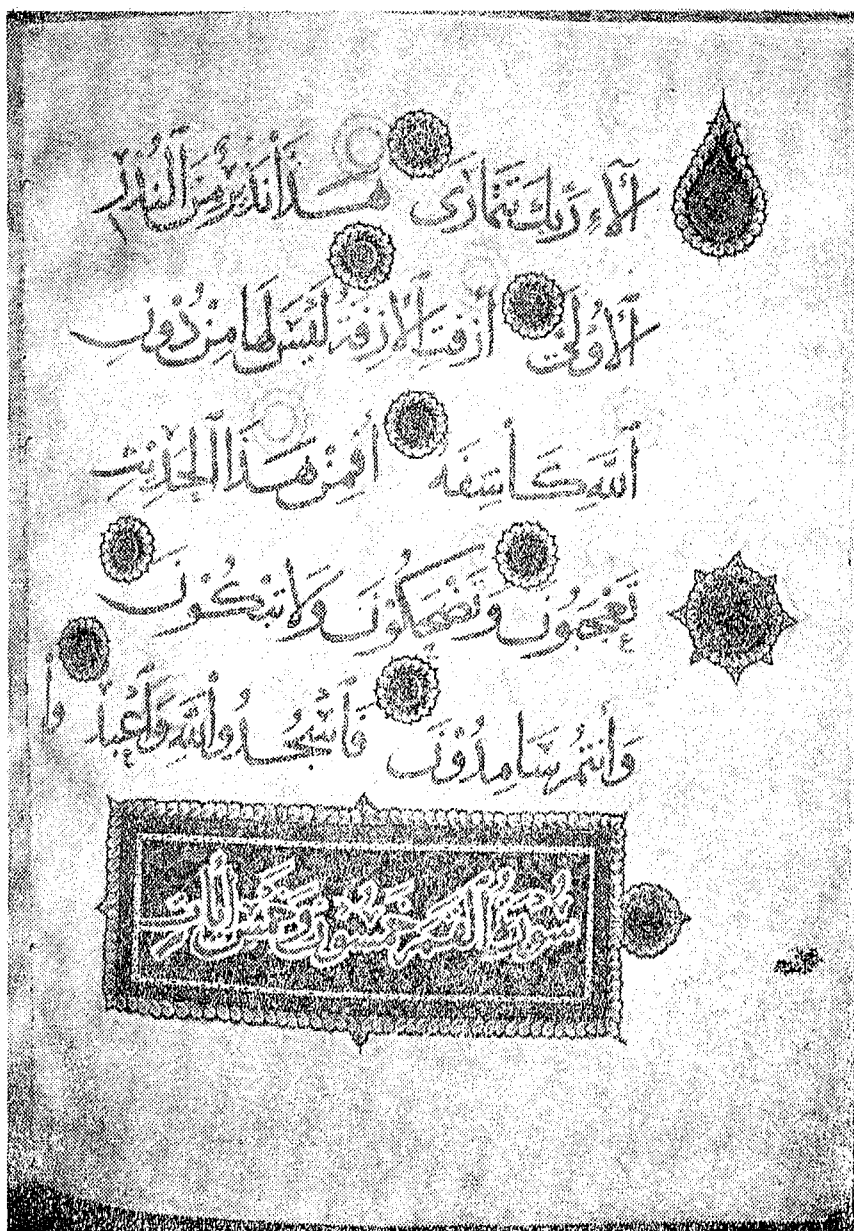 آلَاءِ رَبِّكَ تَتَمَارَى هَذَا نَذِيرٌ مِنَ النُّذُرِ
الْأُولَى أَزِفَتِ الْآزِفَةُ لَيْسَ لَهَا مِنْ دُونِ
اللَّهِ كَاشِفَةٌ أَفَمِنْ هَذَا الْحَدِيثِ
تَعْجَبُونَ وَتَضْحَكُونَ وَلَا تَبْكُونَ
وَأَنْتُمْ سَامِدُونَ فَاسْجُدُوا لِلَّهِ وَاعْبُدُوا
سُورَةُ الْقَمَرِ خَمْسُونَ وَخَمْسُ آيَاتٍ